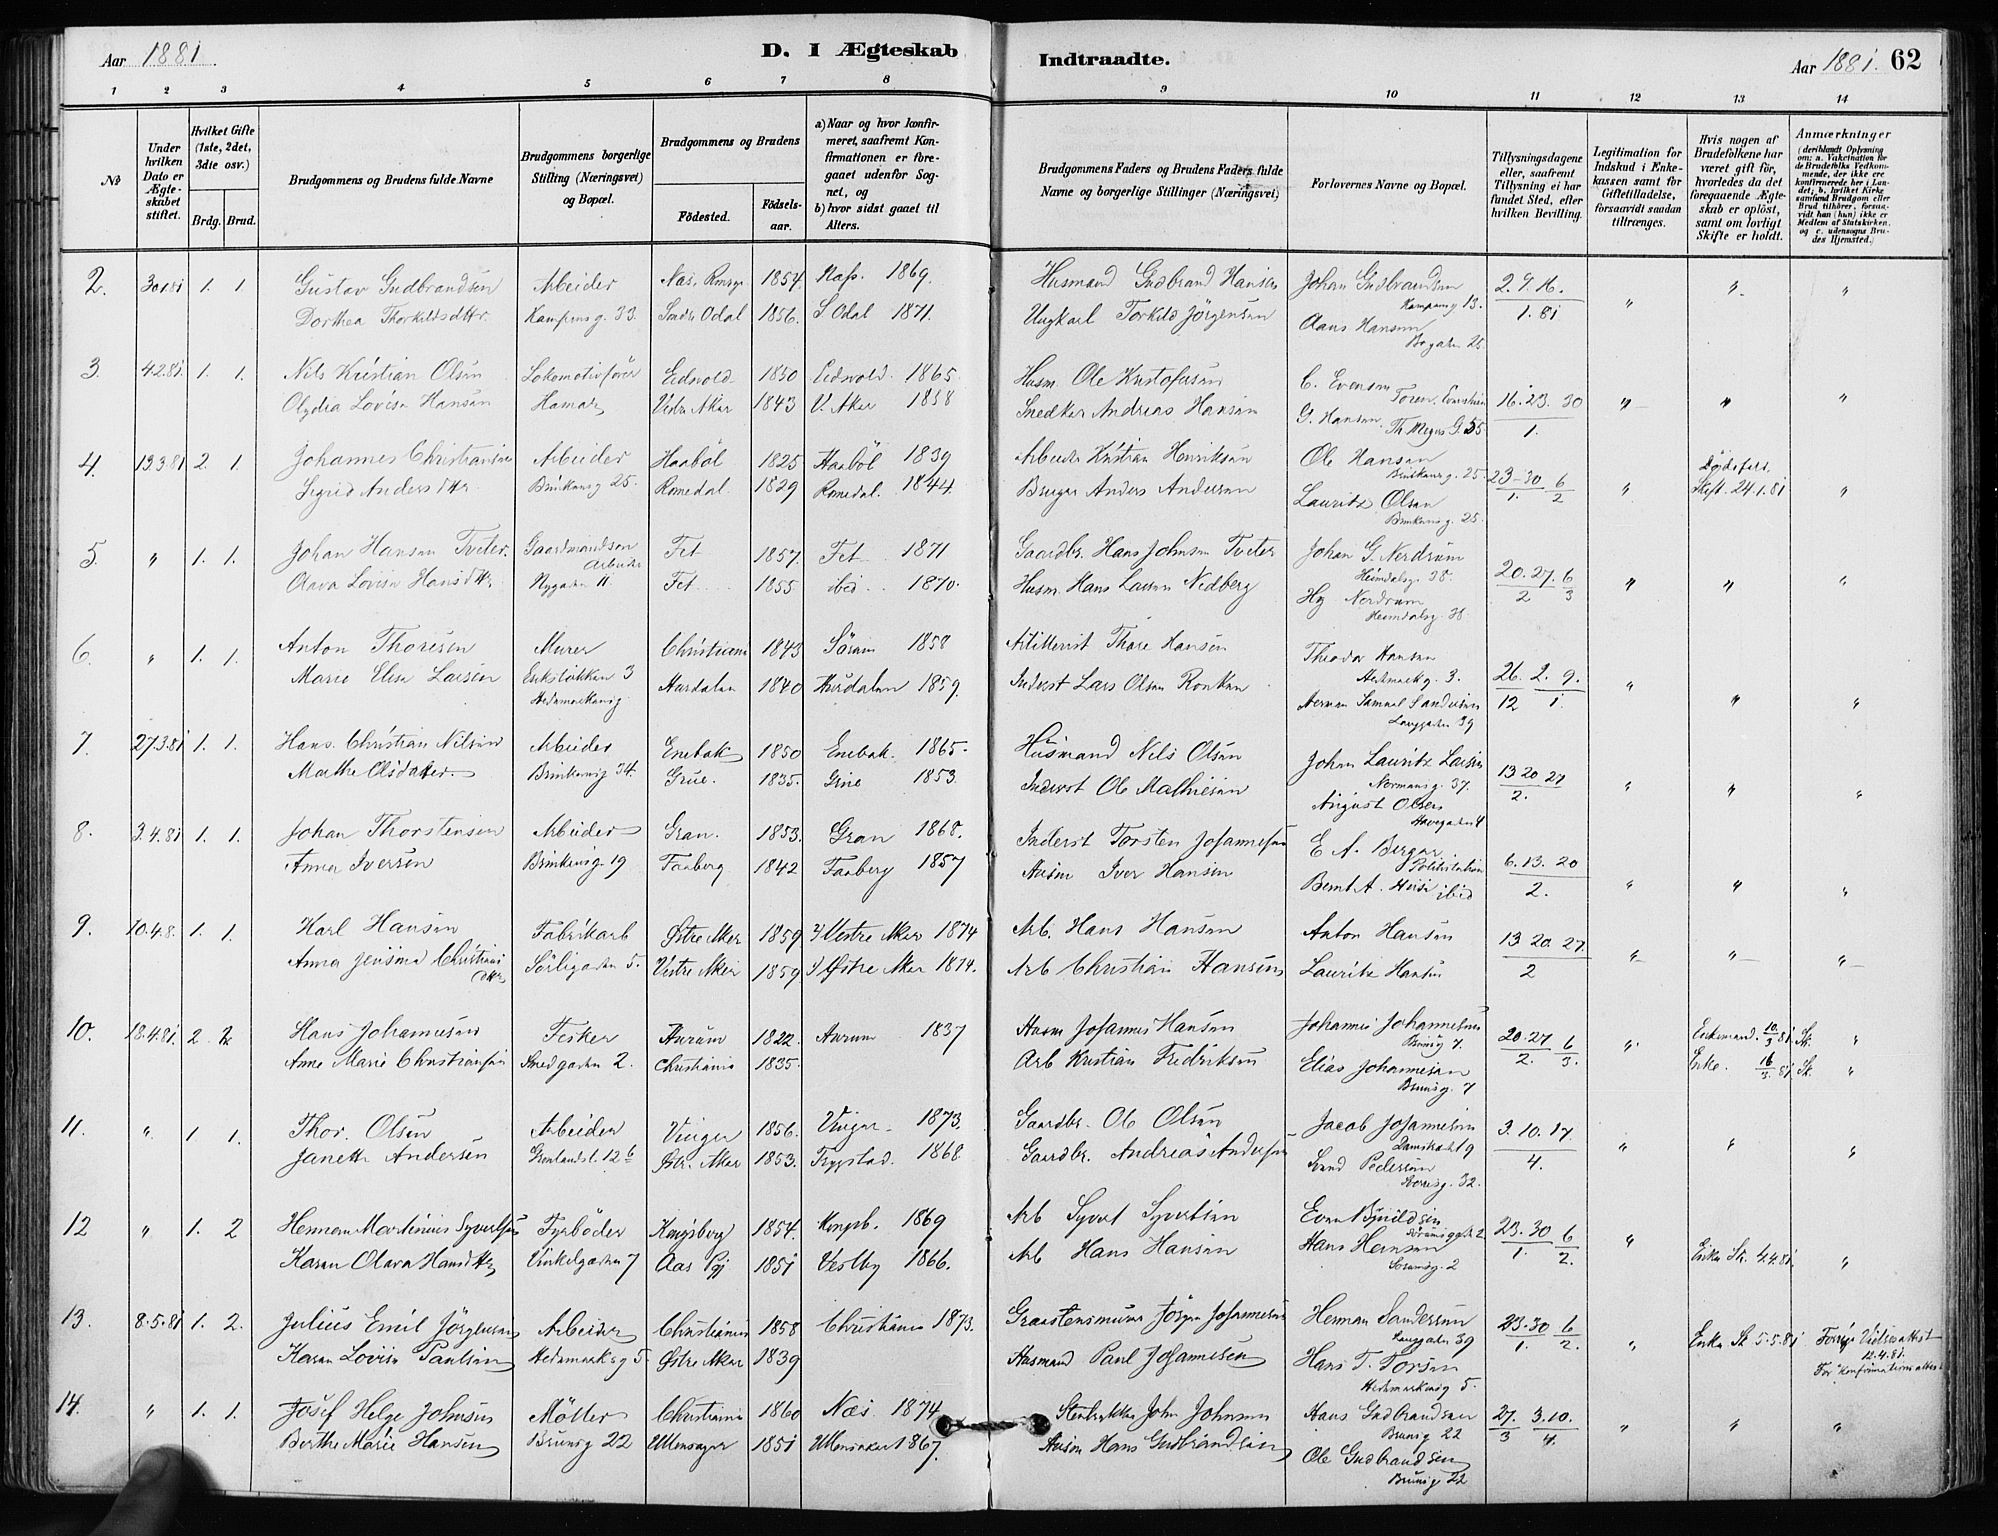 Aar 1881. D. I Ægteskab Indtraadte. Aar 1881. 62
1 2 3 4 5 6 7 8 9 10 11 12 13 14
No
Under hvilken Dato er Ægteskabet stiftet.
Hvilket Gifte (1ste, 2det, 3die osv.)
Brdg. Brud.
Brudgommens og Brudens fulde Navne
Brudgommens borgerlige Stilling (Næringsvei) og Bopæl.
Brudgommens og Brudens
Fødested. Fødselsaar.
a) Naar og hvor konfirmeret, saafremt Konfirmationen er foregaaet udenfor Sognet, og
b) hvor sidst gaaet til Alters.
Brudgommens Faders og Brudens Faders fulde Navne og borgerlige Stillinger (Næringsvei)
Forlovernes Navne og Bopæl.
Tillysningsdagene eller, saafremt Tillysning ei har fundet Sted, efter hvilken Bevilling.
Legitimation for Indskud i Enkekassen samt for Giftetilladelse, forsaavidt saadan tiltrænges.
Hvis nogen af Brudefolkene har været gift, hvorledes da det foregaaende Ægteskab er opløst, samt om lovligt Skifte er holdt.
Anmærkninger (deriblandt Oplysning om: a. Vakcination for de Brudefolks Vedkommende, der ikke ere konfirmerede her i Landet; b. hvilket Kirkesamfund Brudgom eller Brud tilhører, forsaavidt han (hun) ikke er Medlem af Statskirken, og c. udensogns Brudes Hjemsted.)
2. 30.1.81 1. 1 Gustav Gudbrandsen Arbeider Næs, Romge 1854. Næs. 1869 Husmand Gudbrand Hansen Johan Gudbrandsen Kampensg 13. 2. 9. 16. " " "
Dorthea Thorkildsdttr. Kampensg. 33. Søndre Odal 1856. S Odal 1871. Ungkarl Torkild Jörgensen Hansen 25 1. 81
3. 4.2.81 1. 1. Nils Kristian Olsen Lokomotivfører Eidsvold 1850 Eidsvold. 1865. Husm. Ole Kristofersen C. Evensen 16. 23. 30 " " "
Olydia Lovise Hansen Hamar Vestre Aker 1843 V. Aker 1858 Snedker Andreas Hansen G. Hansen Th Meyers G. 55 1.
4. 13.3.81 2. 1. Johannes Christiansen Arbeider Haaböl 1825 Haaböl 1839 Arbeider Kristian Henriksen Ole Hansen Brinkensg. 25 23-30 6 " "
Sigrid Andersdttr. Brinkensg 25. Romedal. 1829 Romedal. 1844. Bruger Anders Andersen Lauritz Olsen Brinkensg. 25. 1. 2 Skift. 24.1.81
5. " 1. 1. Johan Hansen Tveter. Gaardmandssøn Arbeider Fet 1857. Fet 1871 Gaardbr. Hans Johnsen Tveter Johan G. Nerdrum Heimdalsg. 38. 20. 27. 6 " " "
Lovise Hansdttr. Nygaden 11 Fet 1855 ibid 1870. Husm. Hans Larsen Nedberg Nerdrum Heimdalsg. 38 2 3
6. " 1. 1. Anton Thoresen Murer Christiania 1843 Sørum 1858 Artillerist Thore Hansen Theodor Hansen Hedmarkg. 3. 26. 2. 9. " " "
Marie Elise Larsen 3 Hedemarkensg Hurdalen 1840 Hurdalen 1859. Inderst Lars Olsen Herman Samuel Sandersen Langgaden 39 12 1.
7. 27.3.81 1. 1. Hans Christian Nilsen Arbeider Enebak 1850 Enebak. 1865. Husmand Nils Olsen Johan Lauritz Larsen Normansg. 37. 13 20 27 " " "
Marthe Olsdatter. Brinkensg 34. Grue. 1835. Grue 1853 Inderst Ole Mathiesen August Olsen Havegaden 4 2.
8. 3.4.81 1. 1. Johan Thorstensen Arbeider Gran. 1853. Gran 1868. Inderst Torsten Johannesen E A. Berger Politistation 6. 13. 20 " " "
Anna Iversen Brinkensg. 19 Faaberg 1842 Faaberg 1857 Husm Iver Hansen Bernt A. ibid 2.
9. 10.4.8. 1. 1. Karl Hansen Fabrikarb Østre Aker 1859 Vestre Aker 1874 Arb. Hans Hansen Anton Hansen 13 20 27 " " "
Anna Jensine Christiansdtter Sørligaden 5. Vestre Aker 1859 Østre Aker 1874. Arb Christian Hansen Lauritz Hansen 2
10. 18.4.81. 2 2 Hans Johannesen Fisker Aurum 1822. Aurum 1837 Husm Johannes Hansen Johannes Johannesen Brunsg 7. 20. 27 6 " Enkemand. 10/3 81 Sk. "
Anne Marie Christiansen Smedgaden 2. Christiania 1835. Arb Kristian Fredriksen Elias Johannesen Brunsg. 7 2. 3. Enke. 16/3. 81 Sk. "
11. " 1. 1. Thor. Olsen Arbeider Vinger 1856. Vinger 1873. Gaardbr. Ole Olsen Jacob Johannesen 9 3. 10. 17. " " "
Janette Andersen Grønlandsl. 12 b Østre Aker 1853. Trygstad. 1868. Gaardbr. Andreas Andersen Pedersen 32. 4.
12 " 1. 2 Herman Martinius Syvertsen Fyrbøder Kongsberg 1854. Kongsb. 1869 Arb Syvert Syvertsen 23. 30 6 "
Karen Olava Hansdtter Vinkelgaden 7 Aas Pgj 1851 Vestby 1866. Arb Hans Hansen Hans Hansen 2 1. 2. Enke Sk. 4.4.81. "
13. 8.5.81 1. 2. Julius Emil Jörgensen Arbeider Christiania 1858 Christiania 1873. Graastensmurer Jörgen Johannesen Herman Sandersen Langgaden 39 23. 30 6 " Enke Sk 5.5.81
Karen Lovise Paulsen Hedemarksg 5. Østre Aker 1839 Husmand Paul Johannesen Hans T. Torsen Hedemarkensg 5. 1. 2. 12.4.81. for Konfirmationsattest
14. " 1. 1. Josef Helge Johnsen Møller Christiania 1860 Næs. 1874 John Johnsen Hans Gudbrandsen Brunsg 22 27. 3. 10. " " "
Berthe Marie Hansen Brunsg 22 Ullensager 1851 Ullensaker 1867. Husm Hans Gudbrandsen Ole Gudbrandsen Brunsg 22 3 4.